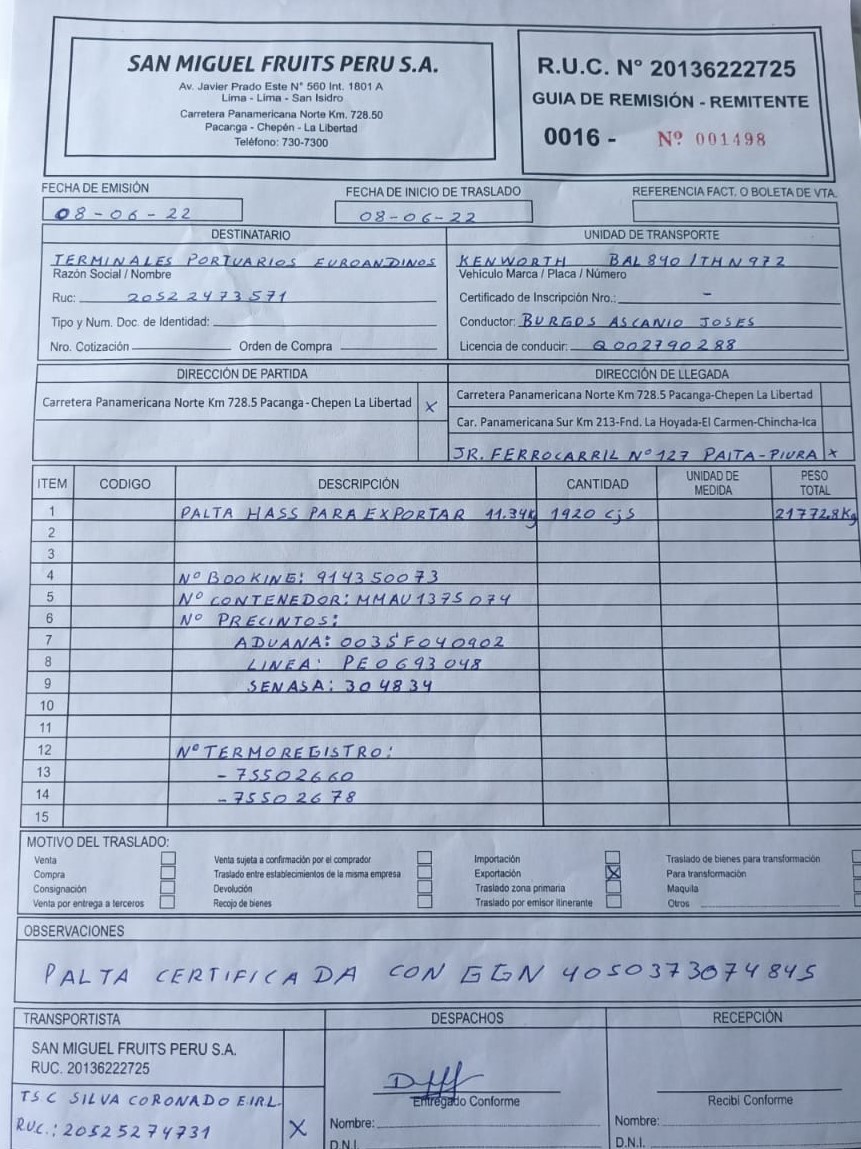 SAN MIGUEL FRUITS PERU S.A.
Av. Javier Prado Este N° 560 Int. 1801 A
Lima - Lima - San Isidro
Carretera Panamericana Norte Km. 728.50
Pacanga - Chepén - La Libertad
Teléfono: 730-7300
R.U.C. N° 20136222725
GUIA DE REMISIÓN - REMITENTE
0016 - Nº 001498
FECHA DE EMISIÓN
08-06-22
FECHA DE INICIO DE TRASLADO
08-06-22
REFERENCIA FACT. O BOLETA DE VTA.
DESTINATARIO
TERMINALES PORTUARIOS EUROANDINOS
Razón Social / Nombre
Ruc: 20522473571
Tipo y Num. Doc. de Identidad:
Nro. Cotización Orden de Compra
UNIDAD DE TRANSPORTE
KENWORTH BAL840/THN972
Vehículo Marca / Placa / Número
Certificado de Inscripción Nro.: -
Conductor: BURGOS ASCANIO JOSES
Licencia de conducir: Q002790288
DIRECCIÓN DE PARTIDA
Carretera Panamericana Norte Km 728.5 Pacanga-Chepen La Libertad X
DIRECCIÓN DE LLEGADA
Carretera Panamericana Norte Km 728.5 Pacanga-Chepen La Libertad
Car. Panamericana Sur Km 213-Fnd. La Hoyada-El Carmen-Chincha-Ica
JR. FERROCARRIL Nº 127 PAITA-PIURA X
ITEM CODIGO DESCRIPCIÓN CANTIDAD UNIDAD DE MEDIDA PESO TOTAL
1 PALTA HASS PARA EXPORTAR 11.34Kg 1920 cjs 21772.8Kg
2
3
4 Nº BOOKING: 914350073
5 Nº CONTENEDOR: MMAU1375074
6 Nº PRECINTOS:
7 ADUANA: 0035F040902
8 LINEA: PE0693048
9 SENASA: 304834
10
11
12 Nº TERMOREGISTRO:
13 - 75502660
14 - 75502678
15
MOTIVO DEL TRASLADO:
Venta
Compra
Consignación
Venta por entrega a terceros
Venta sujeta a confirmación por el comprador
Traslado entre establecimientos de la misma empresa
Devolución
Recojo de bienes
Importación
Exportación X
Traslado zona primaria
Traslado por emisor itinerante
Traslado de bienes para transformación
Para transformación
Maquila
Otros
OBSERVACIONES
PALTA CERTIFICADA CON GGN 4050373074845
TRANSPORTISTA
SAN MIGUEL FRUITS PERU S.A.
RUC. 20136222725
TSC SILVA CORONADO EIRL.
RUC.: 20525274731 X
DESPACHOS
Entregado Conforme
Nombre:
D.N.I.
RECEPCIÓN
Recibi Conforme
Nombre:
D.N.I.